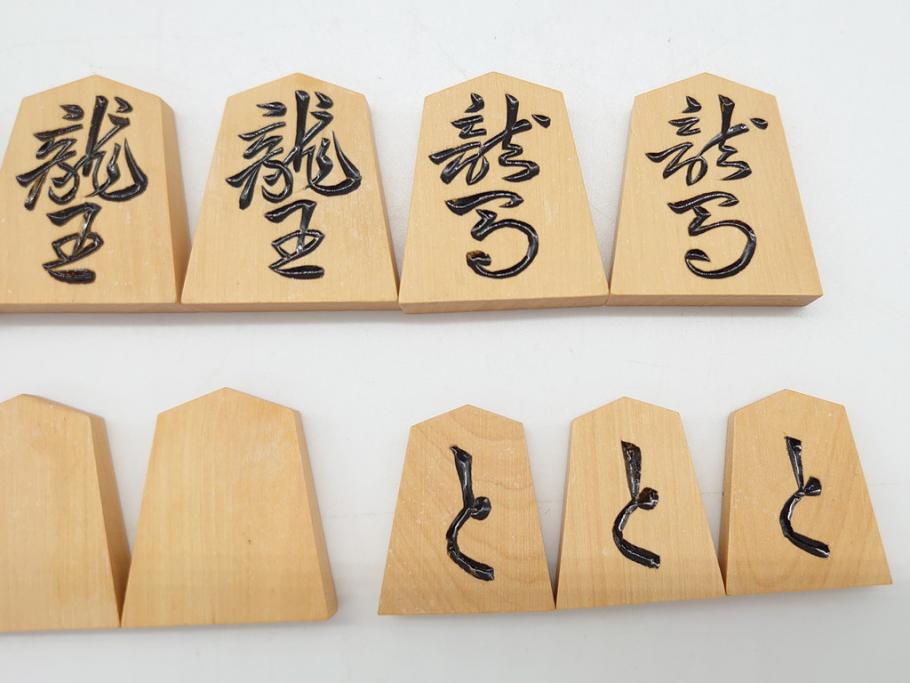 龍王 龍王 龍馬 龍馬
と と と